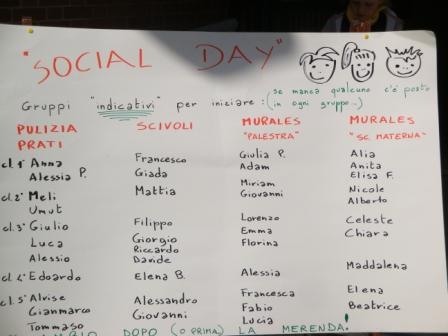 "SOCIAL DAY"
Gruppi "indicativi" per iniziare : (se manca qualcuno c'è posto
in ogni gruppo...)
PULIZIA PRATI SCIVOLI MURALES "PALESTRA" MURALES "SC. MATERNA"
cl. 1ª Anna Francesco Giulia P. Alia
Alessia P. Giada Adam Anita
Elisa F.
cl. 2ª Meli Mattia Miriam Nicole
Umut Giovanni Alberto
cl. 3ª Giulio Filippo Lorenzo Celeste
Luca Giorgio Emma Chiara
Alessio Riccardo Florina
Davide
cl. 4ª Edoardo Elena B. Alessia Maddalena
cl. 5ª Alvise Alessandro Francesca Elena
Gianmarco Giovanni Fabio Beatrice
Tommaso Lucia
DOPO (O PRIMA) LA MERENDA!